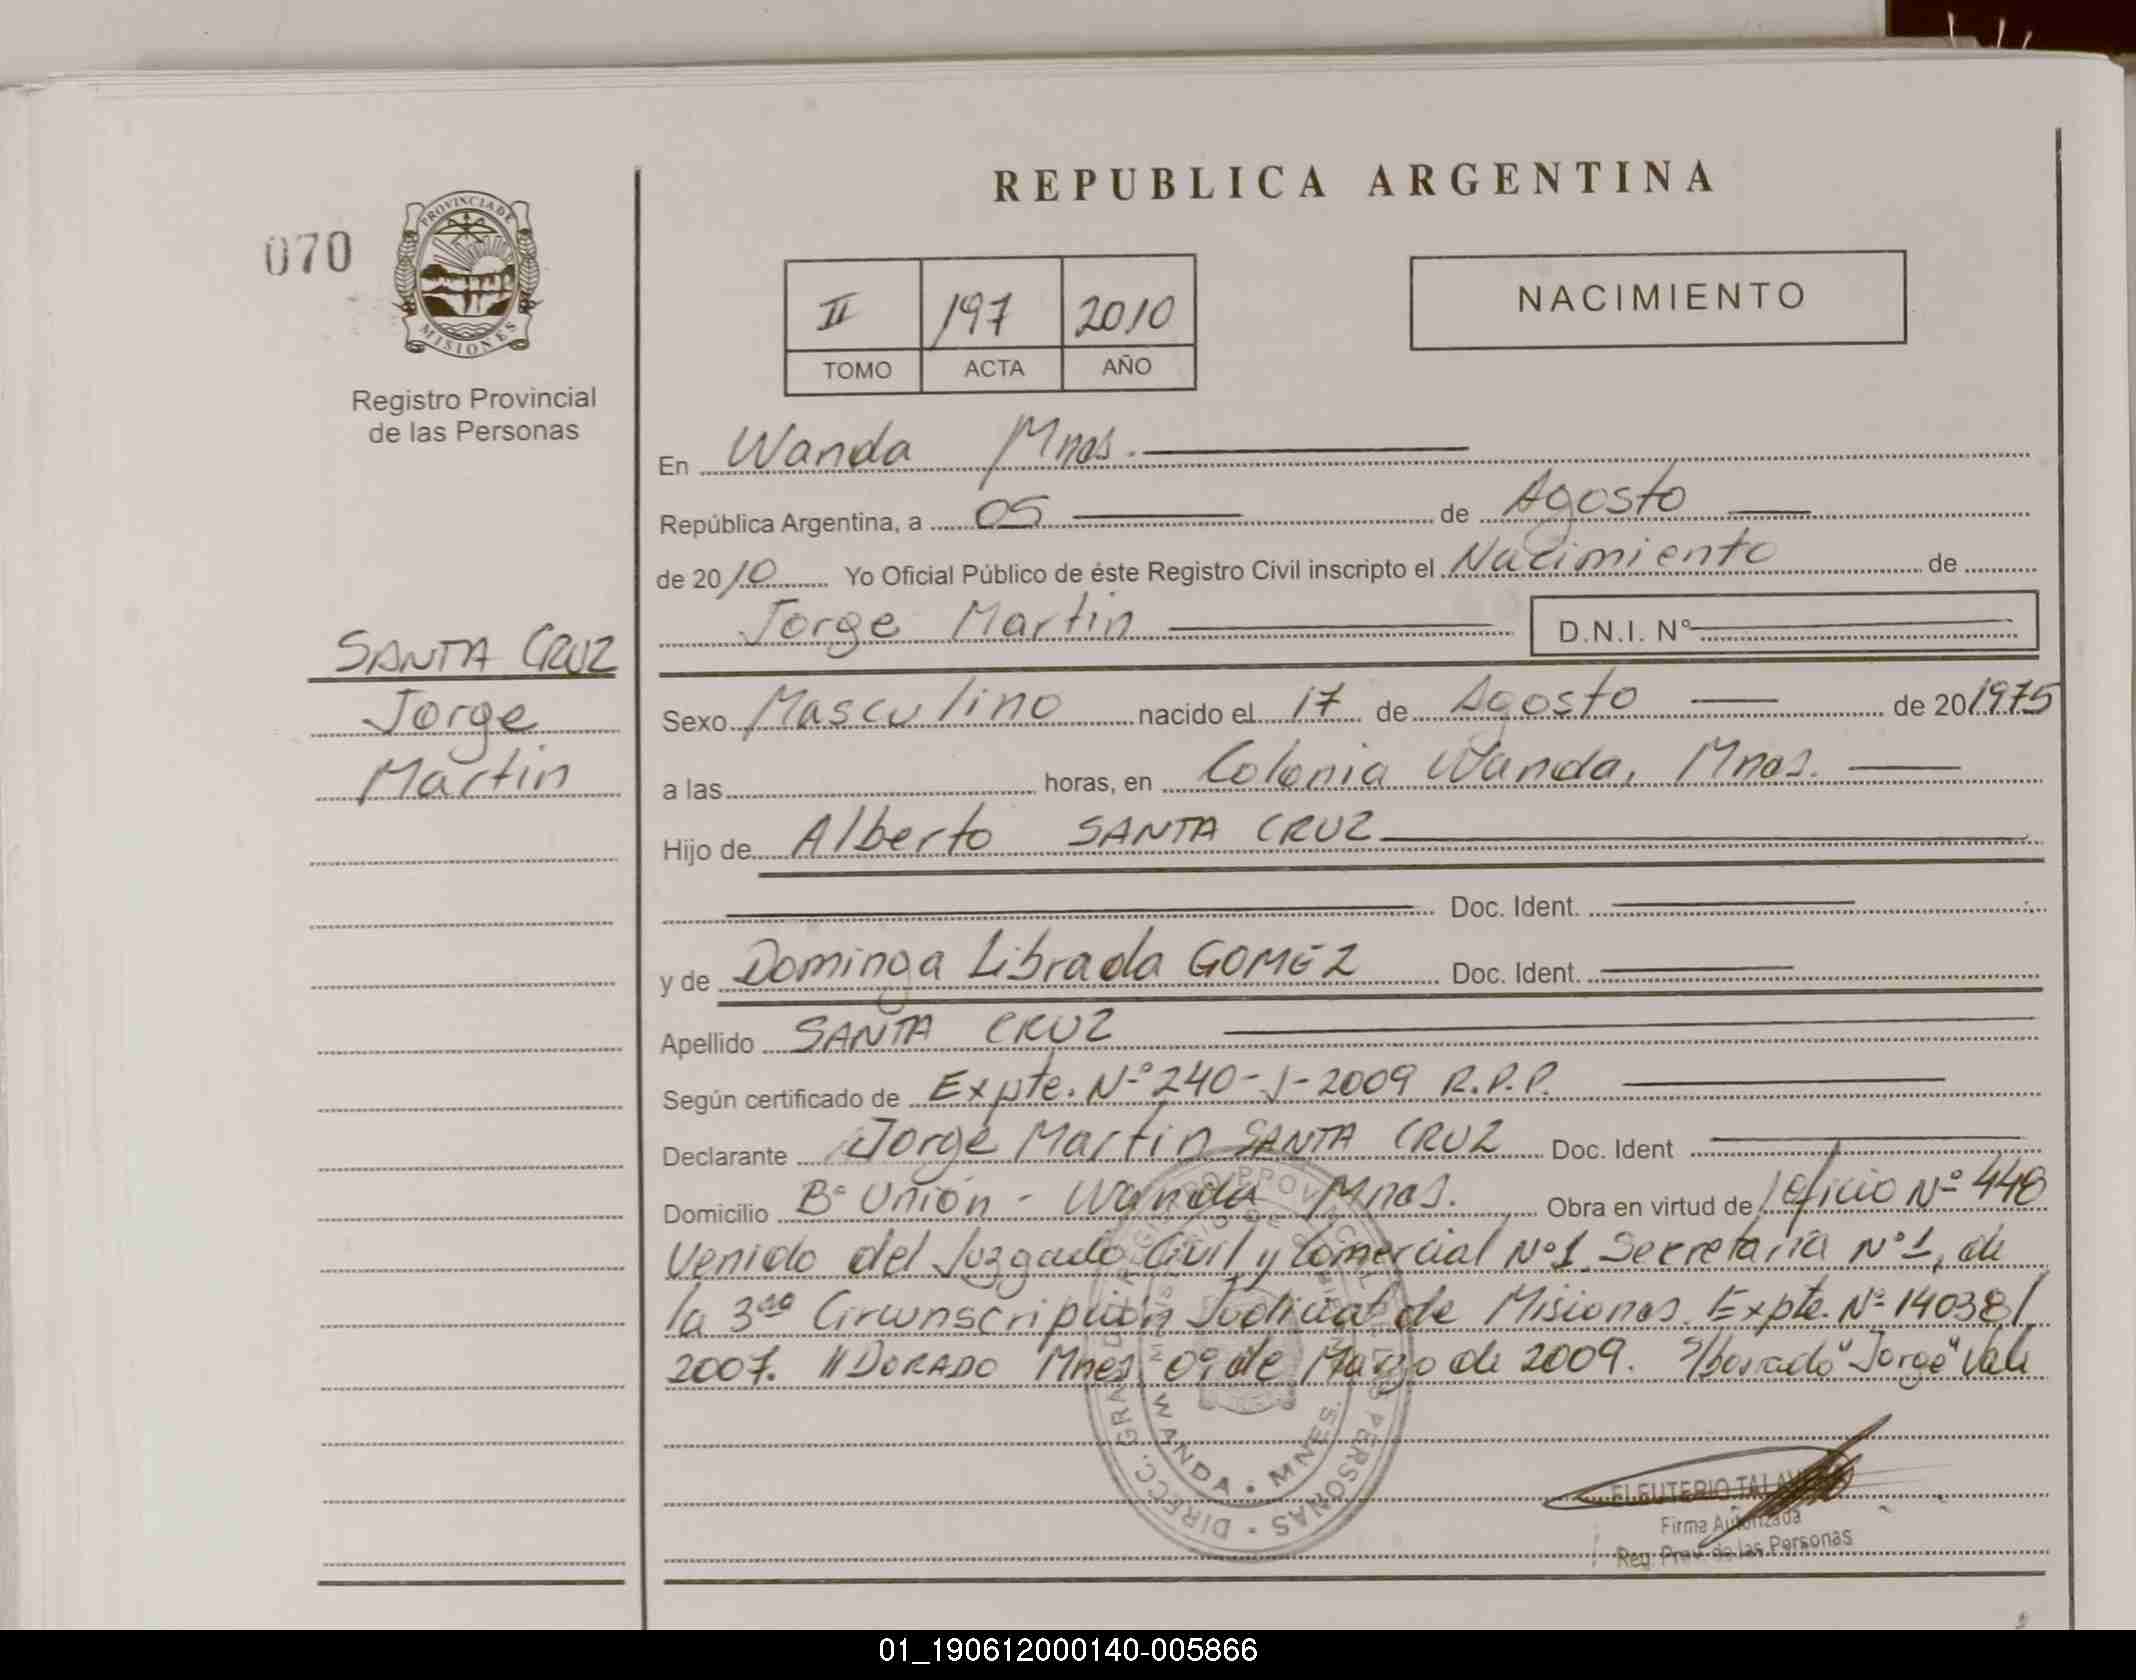 REPUBLICA ARGENTINA
070
PROVINCIA DE
MISIONES
Registro Provincial
de las Personas
II 197 2010
TOMO ACTA AÑO
NACIMIENTO
En Wanda Mnes.
República Argentina, a 05 de Agosto
de 2010 Yo Oficial Público de éste Registro Civil inscripto el Nacimiento de
Jorge Martin D.N.I. Nº
SANTA CRUZ
Jorge
Martin
Sexo Masculino nacido el 17 de Agosto de 20 1975
a las horas, en Colonia Wanda, Mnes.
Hijo de Alberto SANTA CRUZ
Doc. Ident.
y de Dominga Librada GOMEZ Doc. Ident.
Apellido SANTA CRUZ
Según certificado de Expte. Nº 240-J-2009 R.P.P.
Declarante Jorge Martin SANTA CRUZ Doc. Ident
Domicilio Bº Unión - Wanda Mnes. Obra en virtud de Oficio Nº 448
Venido del Juzgado Civil y Comercial Nº1 Secretaria Nº1, de
la 3ra Circunscripción Judicial de Misiones. Expte. Nº 14038/
2007. ELDORADO Mnes de Marzo de 2009. S/borrado "Jorge" Vale
WANDA • MNES.
ELEUTERIO
Firma Autorizada
Reg. Prov. de las Personas
01_190612000140-005866